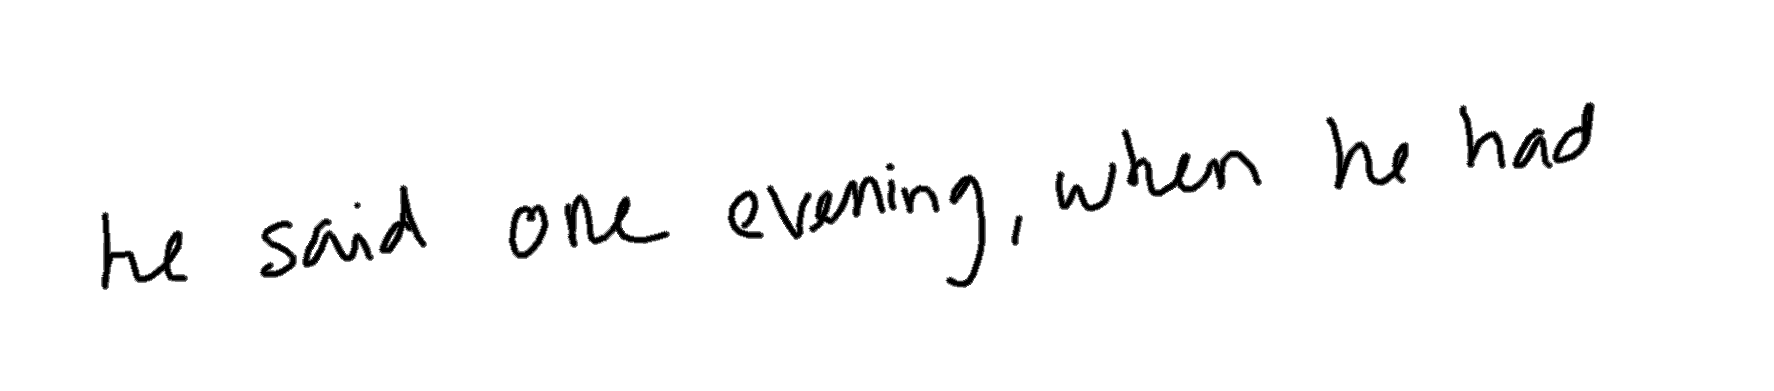 he said one evening, when he had